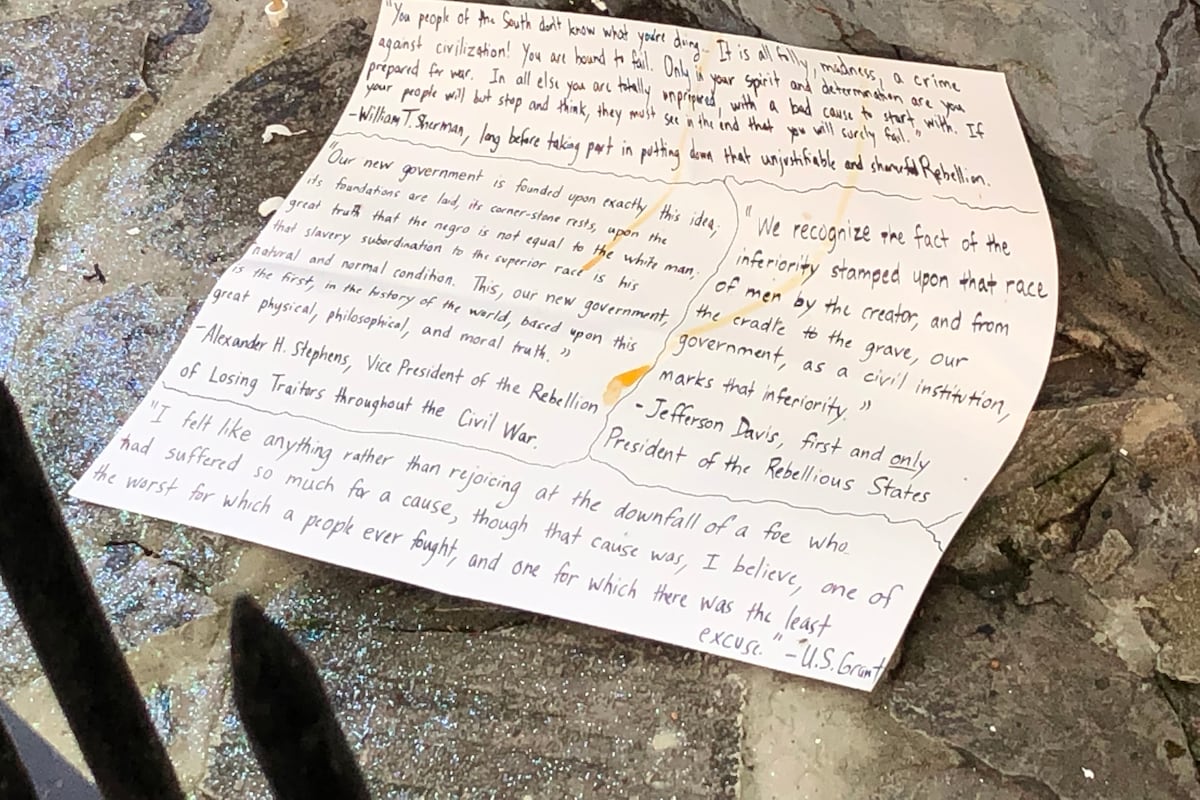 "You people of the South don't know what you're doing... It is all folly, madness, a crime
against civilization! You are bound to fail. Only in your spirit and determination are you
prepared for war. In all else you are totally unprepared, with a bad cause to start with. If
your people will but stop and think, they must see in the end that you will surely fail."
-William T. Sherman, long before taking part in putting down that unjustifiable and shameful Rebellion.
"Our new government is founded upon exactly this idea;
its foundations are laid, its corner-stone rests, upon the
great truth that the negro is not equal to the white man.
that slavery subordination to the superior race is his
natural and normal condition. This, our new government,
is the first, in the history of the world, based upon this
great physical, philosophical, and moral truth."
-Alexander H. Stephens, Vice President of the Rebellion
of Losing Traitors throughout the Civil War.
"We recognize the fact of the
inferiority stamped upon that race
of men by the creator, and from
the cradle to the grave, our
government, as a civil institution,
marks that inferiority."
- Jefferson Davis, first and only
President of the Rebellious States
"I felt like anything rather than rejoicing at the downfall of a foe who
had suffered so much for a cause, though that cause was, I believe, one of
the worst for which a people ever fought, and one for which there was the least
excuse." -U.S. Grant